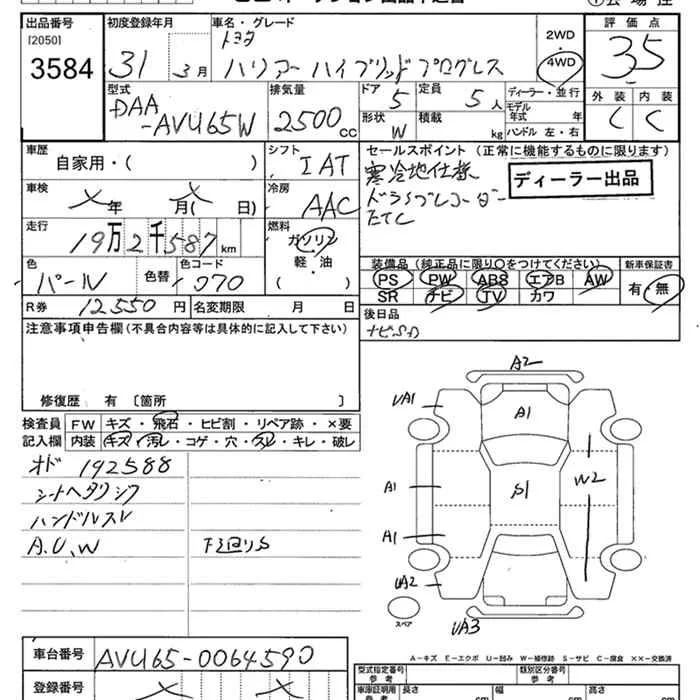 出品番号
[2050]
3584
初度登録年月
31 3月
車名・グレード
トヨタ
ハリアーハイブリッドプログレス
2WD
・
4WD
評価点
3.5
外装 内装
C C
型式
DAA
-AVU65W
排気量
2500cc
ドア 5
定員 5人
形状 W
積載 kg
ディーラー・並行
モデル
年式 年
ハンドル 左・右
車歴
自家用・( )
シフト
IAT
セールスポイント (正常に機能するものに限ります)
寒冷地仕様
ドライブレコーダー
ETC
ディーラー出品
車検
メ年 メ月( 日)
冷房
AAC
走行
19万2千587km
燃料
ガソリン
軽・油
( )
色
パール
色替
色コード
070
装備品 (純正品に限り○をつけてください)
PS PW ABS エアB AW
SR ナビ TV カワ
新車保証書
有・無
R券 12,550円
名変期限 月 日
後日品
ナビSD
注意事項申告欄(不具合内容等は具体的に記入して下さい)
修復歴 有〔箇所 〕
検査員
記入欄
FW キズ・飛石・ヒビ割・リペア跡・×要
内装 キズ・汚レ・コゲ・穴・スレ・キレ・破レ
オド 192588
シートヘタリシワ
ハンドルスレ
A.U.W
下廻りS
A2
UA1
A1
A1
S1
W2
A1
UA2
UA3
スペア
A-キズ E-エクボ U-凹み W-補修跡 S-サビ C-腐食 ××-交換済
車台番号 AVU65-0064590
登録番号 メ メ
型式指定番号
参考
類別区分番号
参考
車庫証明用
参考
長さ cm
幅 cm
高さ cm